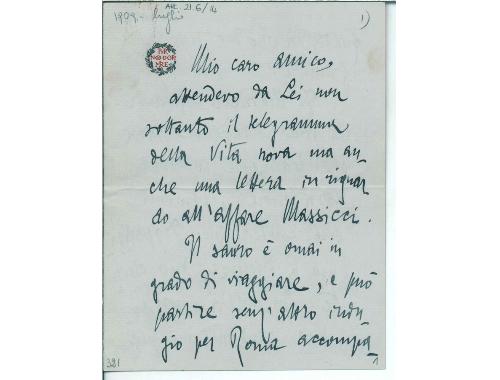 ARC. 21.6/14
1909 - luglio
1)
PER
NON DOR
MIRE
Mio caro amico,
attendevo da Lei non
soltanto il telegramma
della Vita nova ma an-
che una lettera in riguar
do all'affare Massicci.
Il sauro è omai in
grado di viaggiare, e può
partire senz'altro indu-
gio per Roma accompa-
321
1